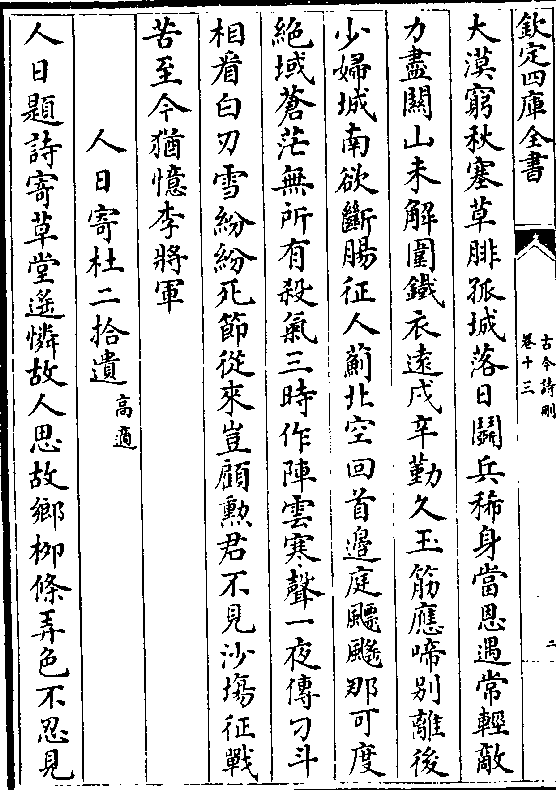 欽定四庫全書
古今詩刪
卷十三
二
大漠窮秋塞草腓孤城落日鬭兵稀身當恩遇常輕敵
力盡關山未解圍鐵衣遠戍辛勤久玉筋應啼別離後
少婦城南欲斷腸征人薊北空回首邉庭飃飖那可度
絶域蒼茫無所有殺氣三時作陣雲寒聲一夜傳刁斗
相看白刃雪紛紛死節從來豈顧勲君不見沙塲征戰
苦至今猶憶李將軍
人日寄杜二拾遺
高適
人日題詩寄草堂遙憐故人思故鄉柳條弄色不忍見